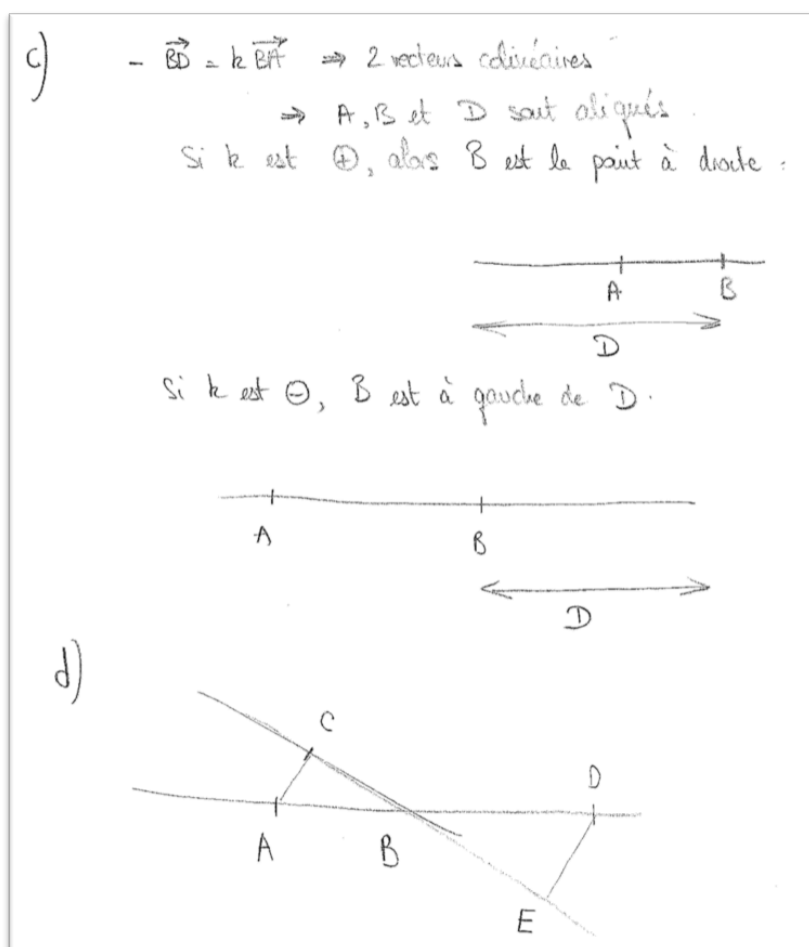 c)
- BD = k BA ⇒ 2 vecteurs colinéaires
⇒ A, B et D sont aligués.
Si k est ⊕, alors B est le point à droite :
A B
D
Si k est ⊖, B est à gauche de D.
A B
D
d)
C
D
A B
E